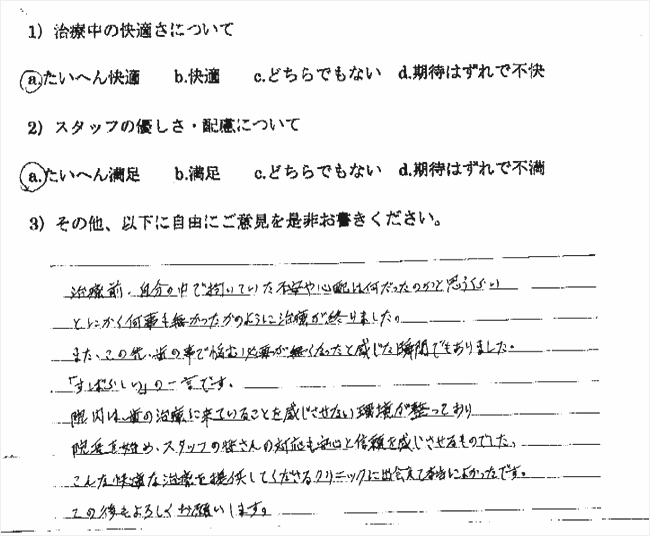 1) 治療中の快適さについて
a.たいへん快適 b.快適 c.どちらでもない d.期待はずれで不快
2) スタッフの優しさ・配慮について
a.たいへん満足 b.満足 c.どちらでもない d.期待はずれで不満
3) その他、以下に自由にご意見を是非お書きください。
治療前、自分の中で抱いていた不安や心配は何だったのかと思うくらい
とにかく何事も無かったかのように治療が終りました。
また、この先、歯の事で悩む必要が無くなったと感じた瞬間でもありました。
「すばらしい」の一言です。
院内は、歯の治療に来ていることを感じさせない環境が整っており
院長を始め、スタッフの皆さんの対応も安心と信頼を感じさせるものでした。
こんな快適な治療を提供してくださるクリニックに出会えて本当によかったです。
この後もよろしくお願いします。